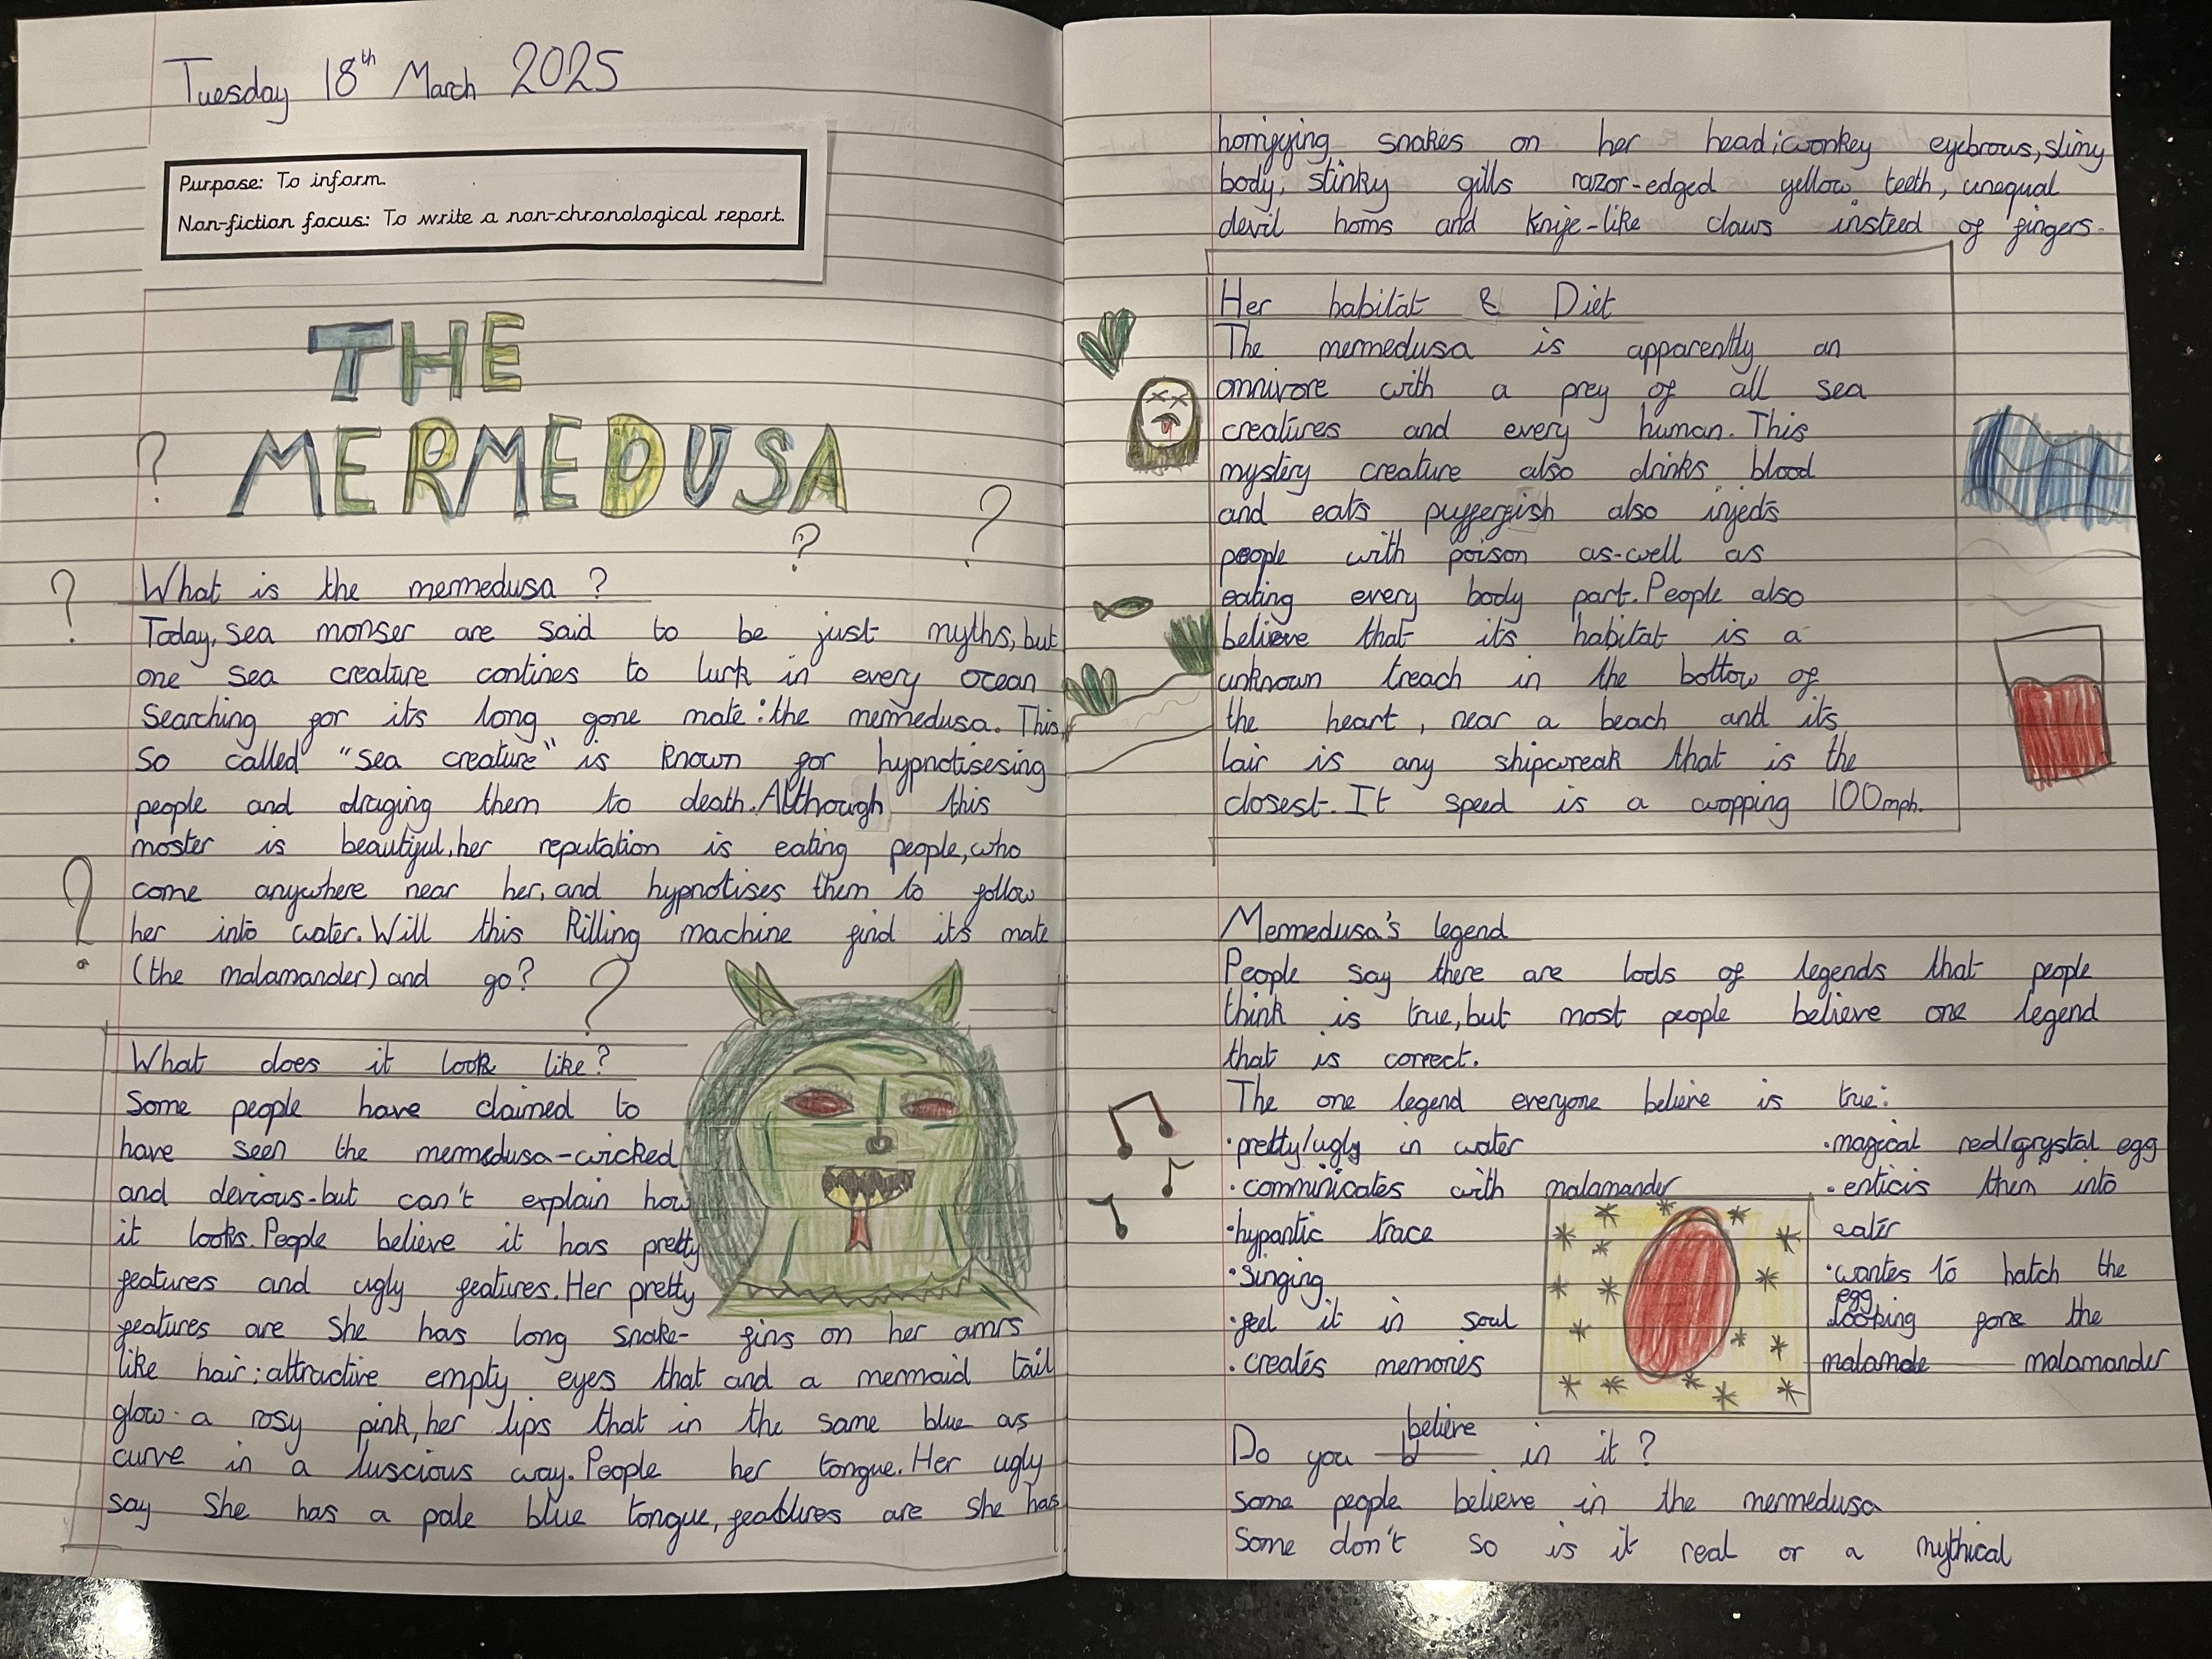 Tuesday 18th March 2025
Purpose: To inform.
Non-fiction focus: To write a non-chronological report.
THE
MERMEDUSA
? ? ?
What is the mermedusa ?
?
Today, sea monser are said to be just myths, but
one sea creature contines to lurk in every ocean
searching for its long gone mate: the mermedusa. This
so called "sea creature" is known for hypnotisesing
people and draging them to death. Although this
moster is beautiful, her reputation is eating people, who
come anywhere near her, and hypnotises them to follow
her into water. Will this killing machine find its mate
(the malamander) and go?
? ?
What does it look like?
Some people have claimed to
have seen the mermedusa-wicked
and devious-but can't explain how
it looks. People believe it has pretty
features and ugly features. Her pretty
features are she has long snake- fins on her amrs
like hair; attractive empty eyes that and a mermaid tail
glow a rosy pink, her lips that in the same blue as
curve in a luscious way. People her tongue. Her ugly
say she has a pale blue tongue, features are she has
horrifying snakes on her head; wonkey eyebrous, slimy
body, stinky gills razor-edged yellow teeth, unequal
devil horns and knife-like claws instead of fingers.
Her habitat & Diet
The mermedusa is apparently an
omnivore with a prey of all sea
creatures and every human. This
mystery creature also drinks blood
and eats pufferfish also injects
people with poison as-well as
eating every body part. People also
believe that its habitat is a
unknown treach in the bottow of
the heart, near a beach and its
lair is any shipwreak that is the
closest. It speed is a wopping 100mph.
Mermedusa's legend
People say there are lods of legends that people
think is true, but most people believe one legend
that is correct.
The one legend everyone believe is true:
·pretty/ugly in water
·comminicates with malamander
·hypantic trace
·singing
·feel it in soul
·creates memories
·magical red/crystal egg
·enticis them into
water
·wantes to hatch the
egg
·looking fore the
malamde malamander
Do you b believe in it?
some people believe in the mermedusa
Some don't so is it real or a mythical